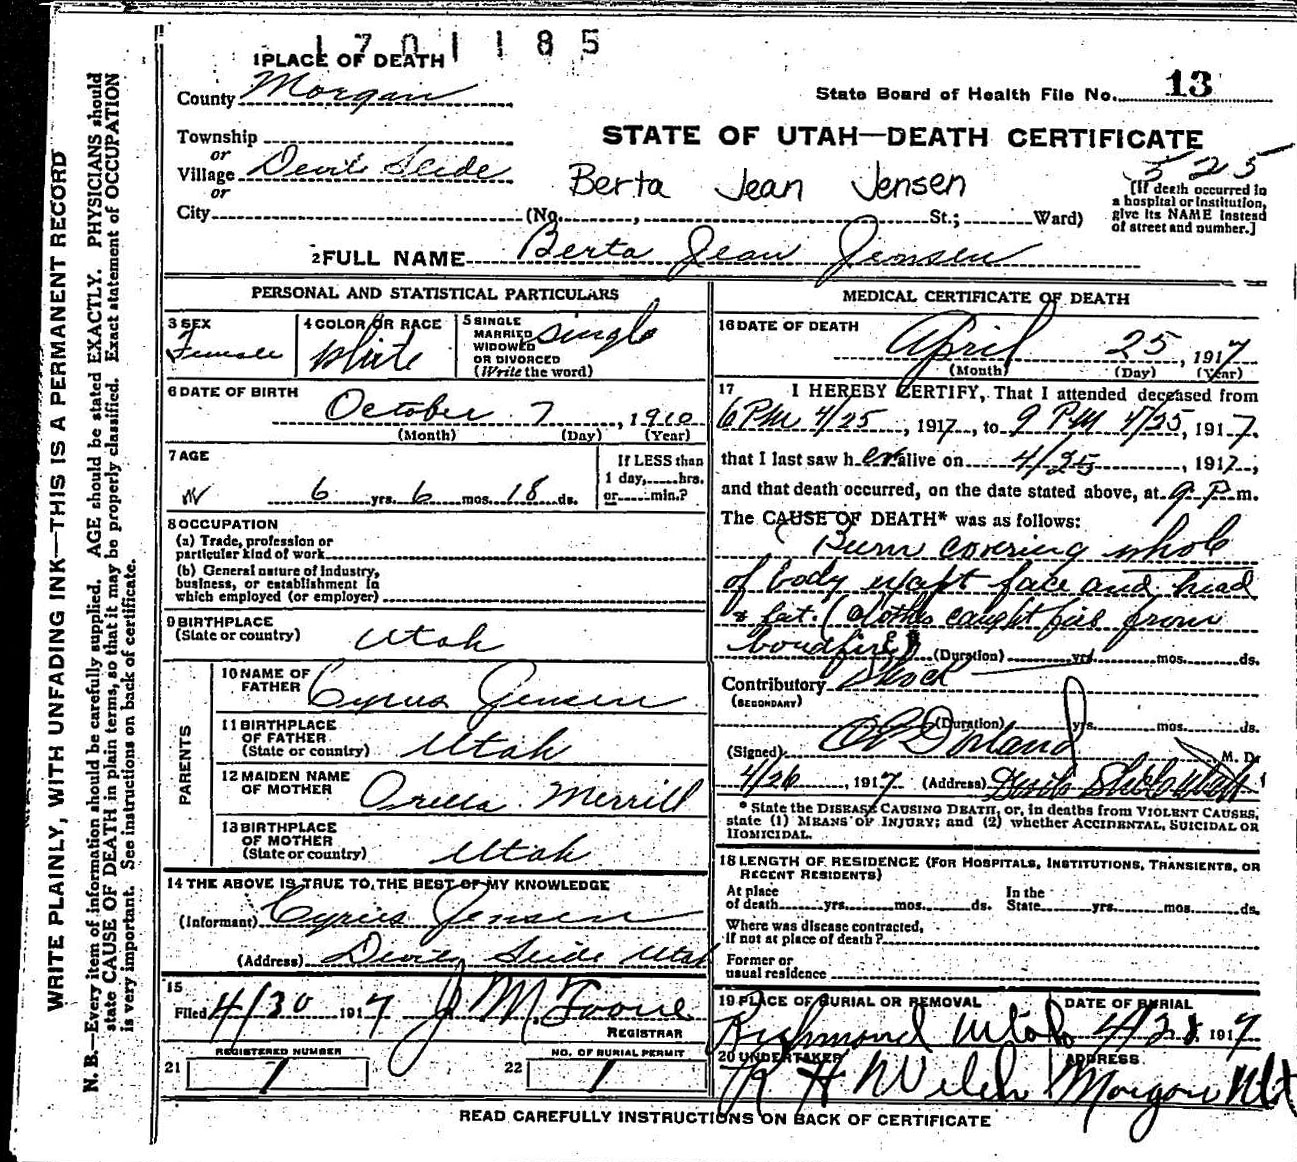 1701185
1 PLACE OF DEATH
County Morgan
State Board of Health File No. 13
Township
or
Village Devils Slide
or
City (No. , St.; Ward)
STATE OF UTAH—DEATH CERTIFICATE
525
Berta Jean Jensen
[If death occurred in
a hospital or institution,
give its NAME instead
of street and number.]
2 FULL NAME Berta Jean Jensen
PERSONAL AND STATISTICAL PARTICULARS
3 SEX
Female
4 COLOR OR RACE
White
5 SINGLE
MARRIED
WIDOWED
OR DIVORCED
(Write the word)
Single
6 DATE OF BIRTH
October 7, 1910
(Month) (Day) (Year)
7 AGE
6 yrs. 6 mos. 18 ds.
If LESS than
1 day, hrs.
or min.?
8 OCCUPATION
(a) Trade, profession or
particular kind of work
(b) General nature of industry,
business, or establishment in
which employed (or employer)
9 BIRTHPLACE
(State or country) Utah
PARENTS
10 NAME OF
FATHER Cyrus Jensen
11 BIRTHPLACE
OF FATHER
(State or country) Utah
12 MAIDEN NAME
OF MOTHER Orilla Merrill
13 BIRTHPLACE
OF MOTHER
(State or country) Utah
14 THE ABOVE IS TRUE TO THE BEST OF MY KNOWLEDGE
(Informant) Cyrus Jensen
(Address) Devils Slide Utah
15
Filed 4/30 1917 J M. Toone
REGISTRAR
REGISTERED NUMBER
21 1
NO. OF BURIAL PERMIT
22 1
MEDICAL CERTIFICATE OF DEATH
16 DATE OF DEATH
April 25, 1917
(Month) (Day) (Year)
17 I HEREBY CERTIFY, That I attended deceased from
6 PM 4/25, 1917, to 9 PM 4/25, 1917.
that I last saw her alive on 4/25, 1917,
and that death occurred, on the date stated above, at 9 P m.
The CAUSE OF DEATH* was as follows:
Burn covering whole
of body except face and head
& feet. (Clothes caught fire from
bondfire) (Duration) yrs. mos. ds.
Contributory Shock
(SECONDARY)
(Duration) yrs. mos. ds.
(Signed) Dorland M. D.
4/26, 1917 (Address) Devils Slide Utah
* State the DISEASE CAUSING DEATH, or, in deaths from VIOLENT CAUSES,
state (1) MEANS OF INJURY; and (2) whether ACCIDENTAL, SUICIDAL OR
HOMICIDAL.
18 LENGTH OF RESIDENCE (FOR HOSPITALS, INSTITUTIONS, TRANSIENTS, OR
RECENT RESIDENTS)
At place
of death yrs. mos. ds.
In the
State yrs. mos. ds.
Where was disease contracted,
If not at place of death?
Former or
usual residence
19 PLACE OF BURIAL OR REMOVAL
Richmond Utah
DATE OF BURIAL
4/28 1917
20 UNDERTAKER
R H Welch
ADDRESS
Morgan Ut
READ CAREFULLY INSTRUCTIONS ON BACK OF CERTIFICATE
WRITE PLAINLY, WITH UNFADING INK—THIS IS A PERMANENT RECORD
N. B.—Every item of information should be carefully supplied. AGE should be stated EXACTLY. PHYSICIANS should
state CAUSE OF DEATH in plain terms, so that it may be properly classified. Exact statement of OCCUPATION
is very important. See instructions on back of certificate.